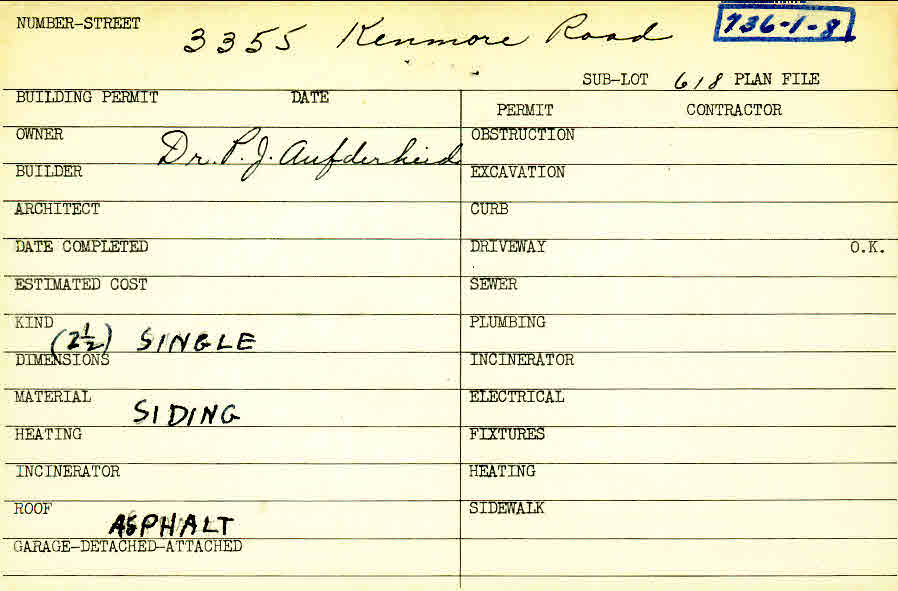 NUMBER-STREET 3355 Kenmore Road 736-1-8
SUB-LOT 618 PLAN FILE
BUILDING PERMIT DATE
PERMIT CONTRACTOR
OWNER Dr. P. J. Aufderheid
BUILDER
ARCHITECT
DATE COMPLETED
ESTIMATED COST
KIND (2½) SINGLE
DIMENSIONS
MATERIAL SIDING
HEATING
INCINERATOR
ROOF ASPHALT
GARAGE-DETACHED-ATTACHED
OBSTRUCTION
EXCAVATION
CURB
DRIVEWAY O.K.
SEWER
PLUMBING
INCINERATOR
ELECTRICAL
FIXTURES
HEATING
SIDEWALK